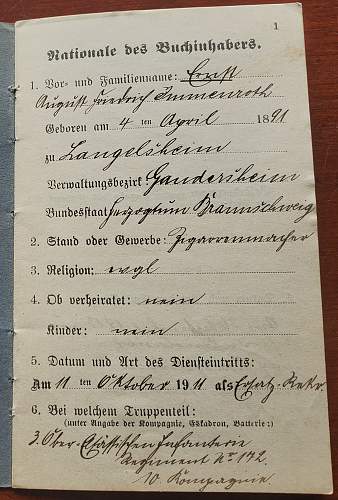 1
Nationale des Buchinhabers.
1. Vor- und Familienname: Ernst
August Friedrich Immenroth
Geboren am 4 ten April 1891
zu Langelsheim
Verwaltungsbezirk: Gandersheim
Bundesstaat: Herzogtum Braunschweig
2. Stand oder Gewerbe: Zigarrenmacher
3. Religion: evgl
4. Ob verheiratet: nein
Kinder: nein
5. Datum und Art des Diensteintritts:
Am 11 ten Oktober 1911 als Ersatz-Rekr.
6. Bei welchem Truppenteil:
(unter Angabe der Kompagnie, Eskadron, Batterie:)
3. Ober-Elsässischen Infanterie
Regiment No 172
10. Kompagnie.